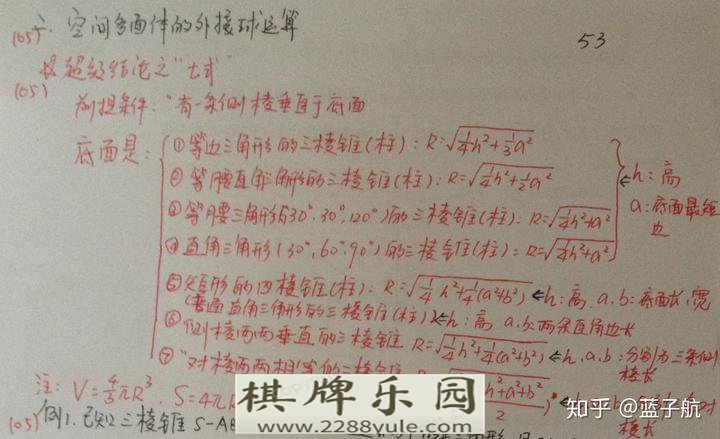 (05)
二、空间多面体的外接球运算
53
(05)
超级结论之"七式"
前提条件:"有一条侧棱垂直于底面
底面是:
①等边三角形的三棱锥(柱): R=√(1/4h²+1/3a²)
②等腰直角三角形的三棱锥(柱): R=√(1/4h²+1/2a²)
③等腰三角形(30°,30°,120°)的三棱锥(柱): R=√(1/4h²+a²)
④直角三角形(30°,60°,90°)的三棱锥(柱): R=√(1/4h²+a²)
←h:高
a:底面最短边
⑤矩形的四棱锥(柱): R=√(1/4h²+1/4(a²+b²)) ←h:高, a,b:底面长,宽
(普通直角三角形的三棱锥(柱)) ←h:高 a,b:两条直角边长
⑥侧棱两两垂直的三棱锥 R=√(1/4h²+1/4(a²+b²)) ←h,a,b:分别为三条侧棱长
⑦"对棱两两相等的三棱锥
h²+a²+b²
2
对棱长
注: V=4/3πR³, S=4π
(05)
例1.已知三棱锥 S-AB
棋牌乐园
www.2288yule.com
知乎 @蓝子航